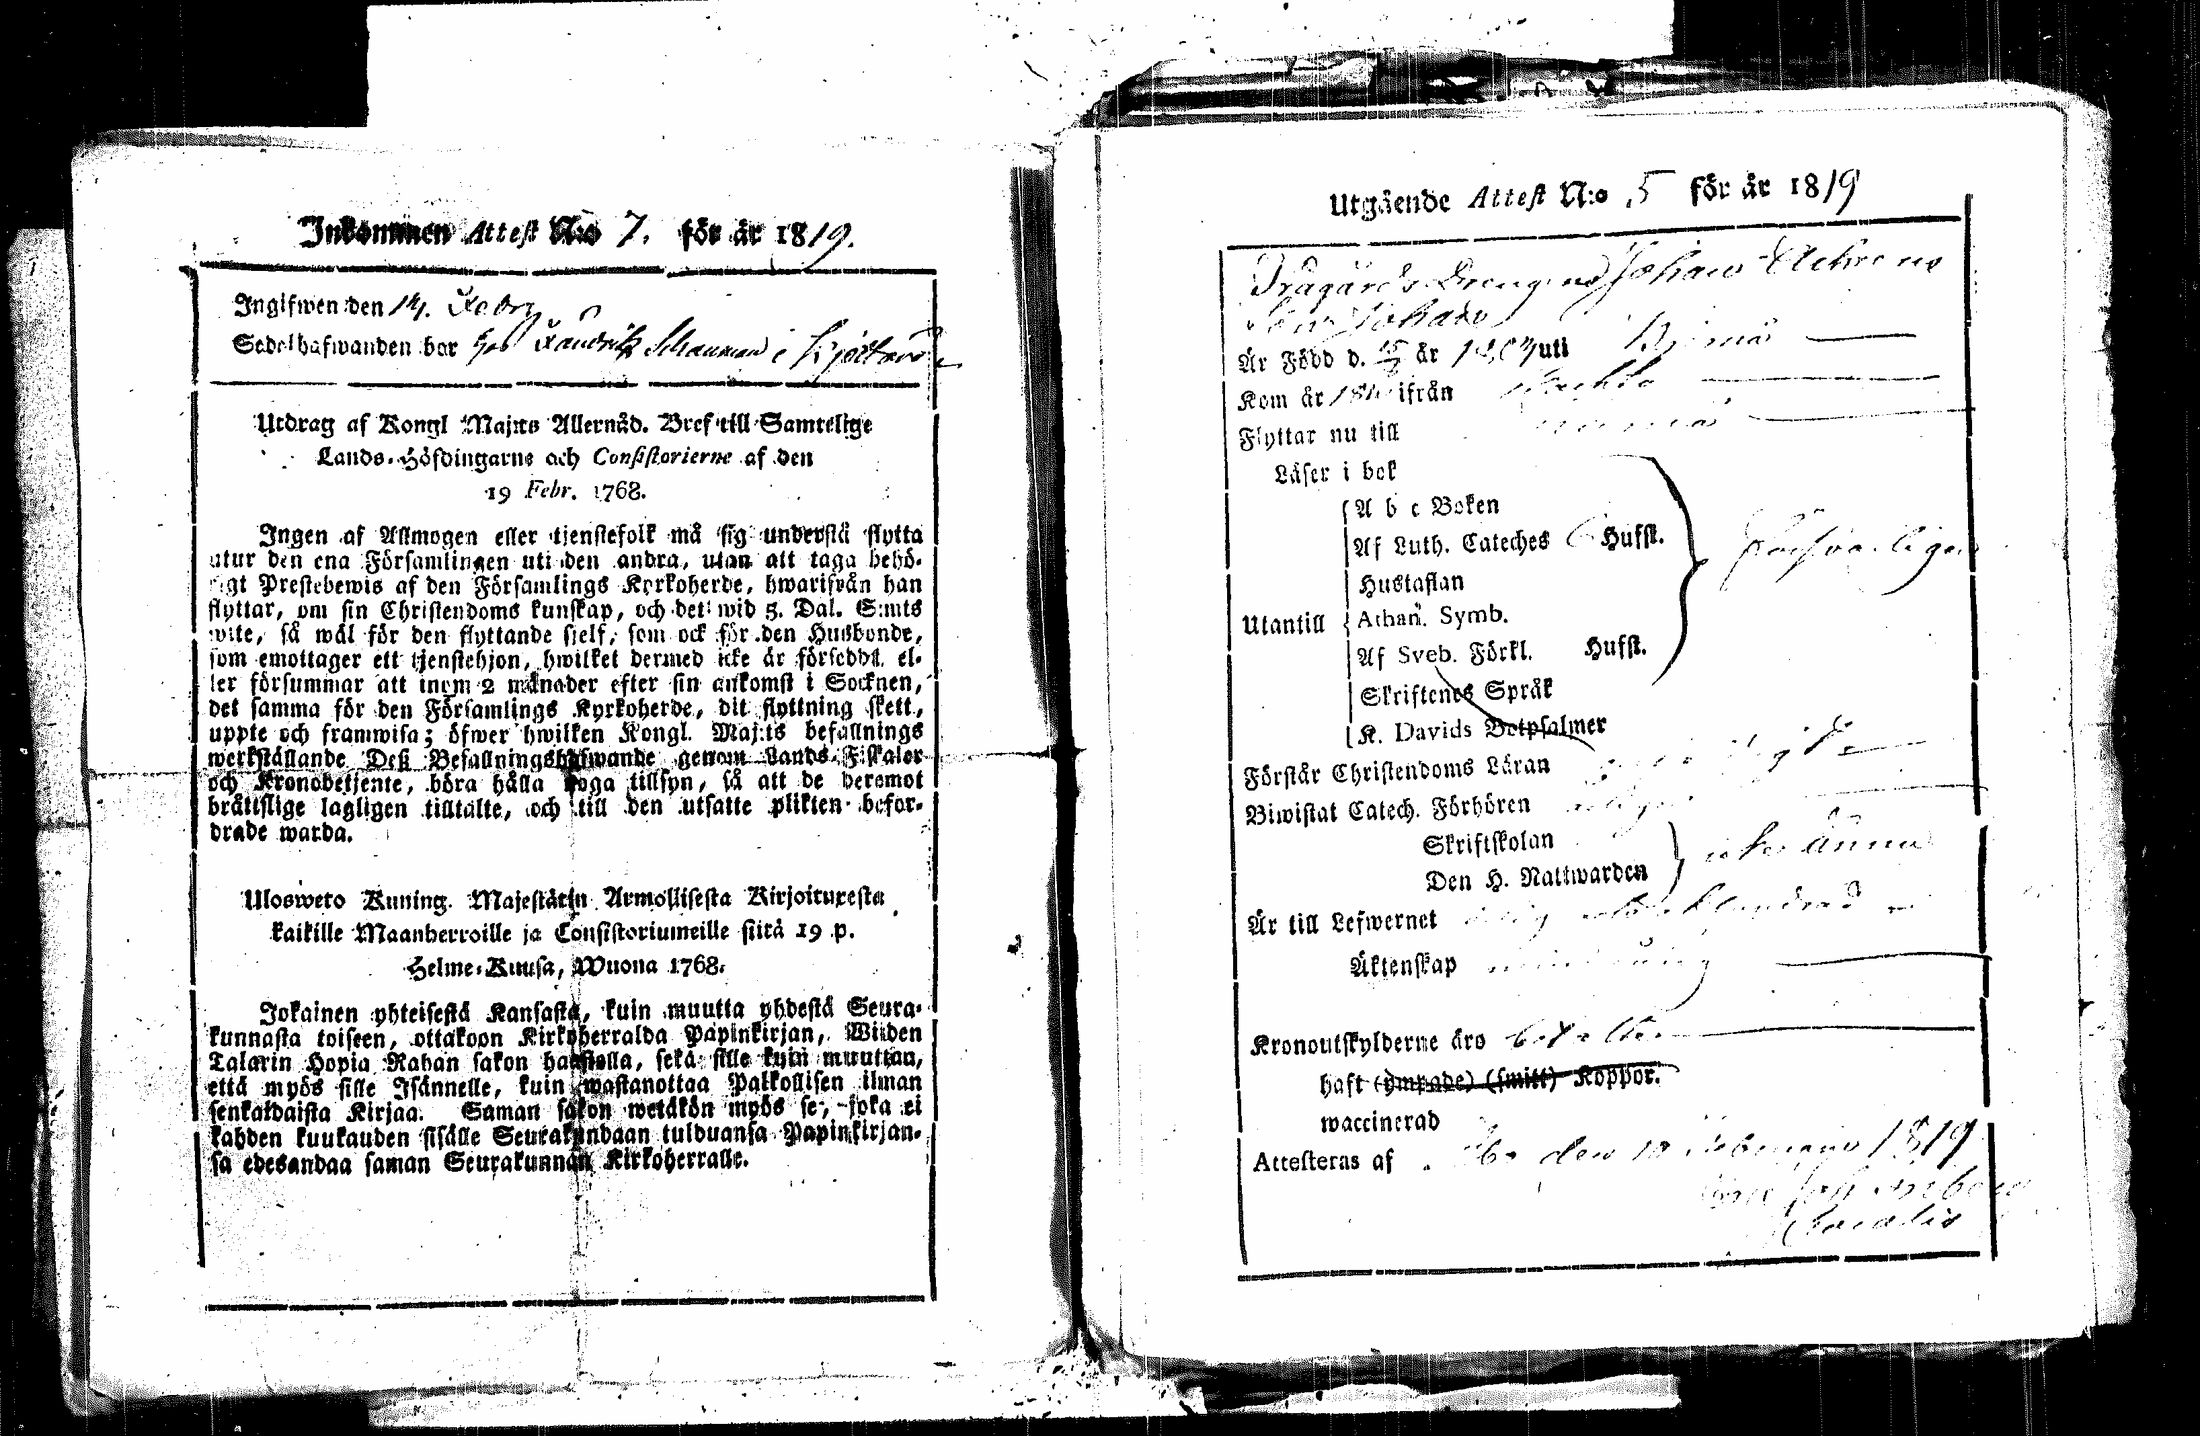 Inkommen Attest N:o 7. för år 1819.
Ingifwen den 14. Febr
Sedelhafwanden bor hos Schauman i
Utdrag af Kongl Maj:ts Allernåd. Bref till Samtelige
Lands-Höfdingarne och Consistorierne af den
19 Febr. 1768.
Ingen af Allmogen eller tjenstefolk må sig understå flytta
utur den ena Församlingen uti den andra, utan att taga behö-
rigt Prestebewis af den Församlings Kyrkoherde, hwarifrån han
flyttar, om sin Christendoms kunskap, och det wid 5. Dal. S:mts
wite, så wäl för den flyttande sjelf, som ock för den Husbonde,
som emottager ett tjenstehjon, hwilket dermed icke är försedt, el-
ler försummar att inom 2 månader efter sin ankomst i Socknen,
det samma för den Församlings Kyrkoherde, dit flyttning skett,
uppte och framwisa; öfwer hwilken Kongl. Maj:ts befallnings
werkställande Deß Befallningshafwande genom Lands-Fiskaler
och Kronobetjente, böra hålla noga tillsyn, så att de deremot
bråttslige lagligen tilltalte, och till den utsatte plikten befor-
drade warda.
Ulosweto Kuning. Majestätin Armollisesta Kirjoituxesta
kaikille Maanherroille ja Consistoriumeille siitä 19 p.
Helme-Kuusa, Wuona 1768.
Jokainen yhteisestä Kansasta, kuin muutta yhdestä Seura-
kunnasta toiseen, ottakoon Kirkoherralda Papinkirjan, Wiiden
Talarin Hopia Rahan sakon haastolla, sekä sille kuin muuttaa,
että myös sille Isännelle, kuin wastanottaa Palkollisen ilman
senkaldaista Kirjaa. Saman sakon wetäkön myös se, joka ei
kahden kuukauden sisälle Seurakundaan tulduansa Papinkirjan-
sa edesandaa saman Seurakunnan Kirkoherralle.
Utgående Attest N:o 5 för år 1819
Trägårds Drengens Johan
Son Johan
Är Född d. år uti
Kom år ifrån
Flyttar nu till
Läser i bok
A b c Boken
Af Luth. Cateches 6 Hufst.
Hustaflan
Utantill Athan. Symb.
Af Sveb. Förkl. Hufst.
Skriftenes Språk
K. Davids Botpsalmer
försvarligen
Förstår Christendoms Läran
Biwistat Catech. Förhören
Skriftskolan
Den H. Nattwarden
icke ännu
Är till Lefwernet
Äktenskap
Kronoutskylderne äro betalte
haft (ympade) (smitt) Koppor.
waccinerad
Attesteras af Åbo den 10 Februarii 1819